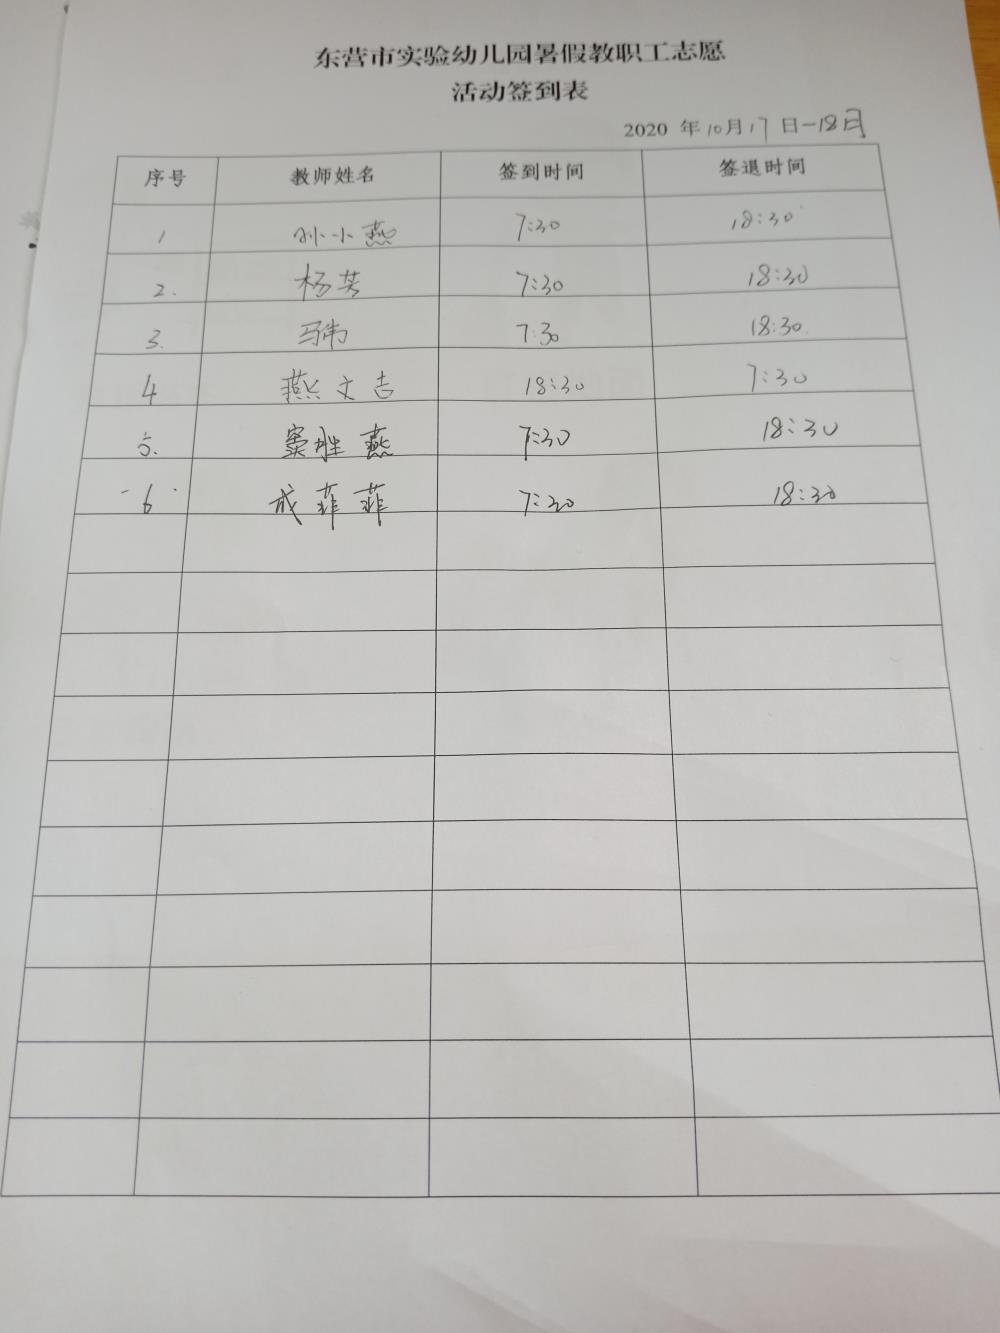 东营市实验幼儿园暑假教职工志愿
活动签到表
2020 年10月17日-18日
序号 教师姓名 签到时间 签退时间
1 孙小燕 7:30 18:30
2. 杨芳 7:30 18:30
3. 马伟 7:30 18:30.
4 燕文吉 18:30 7:30
5. 窦胜燕 7:30 18:30
6 成菲菲 7:30 18:30